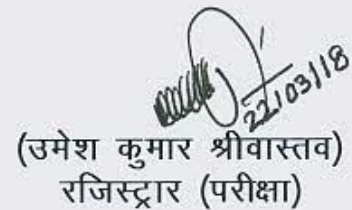 22/03/18
(उमेश कुमार श्रीवास्तव)
रजिस्ट्रार (परीक्षा)